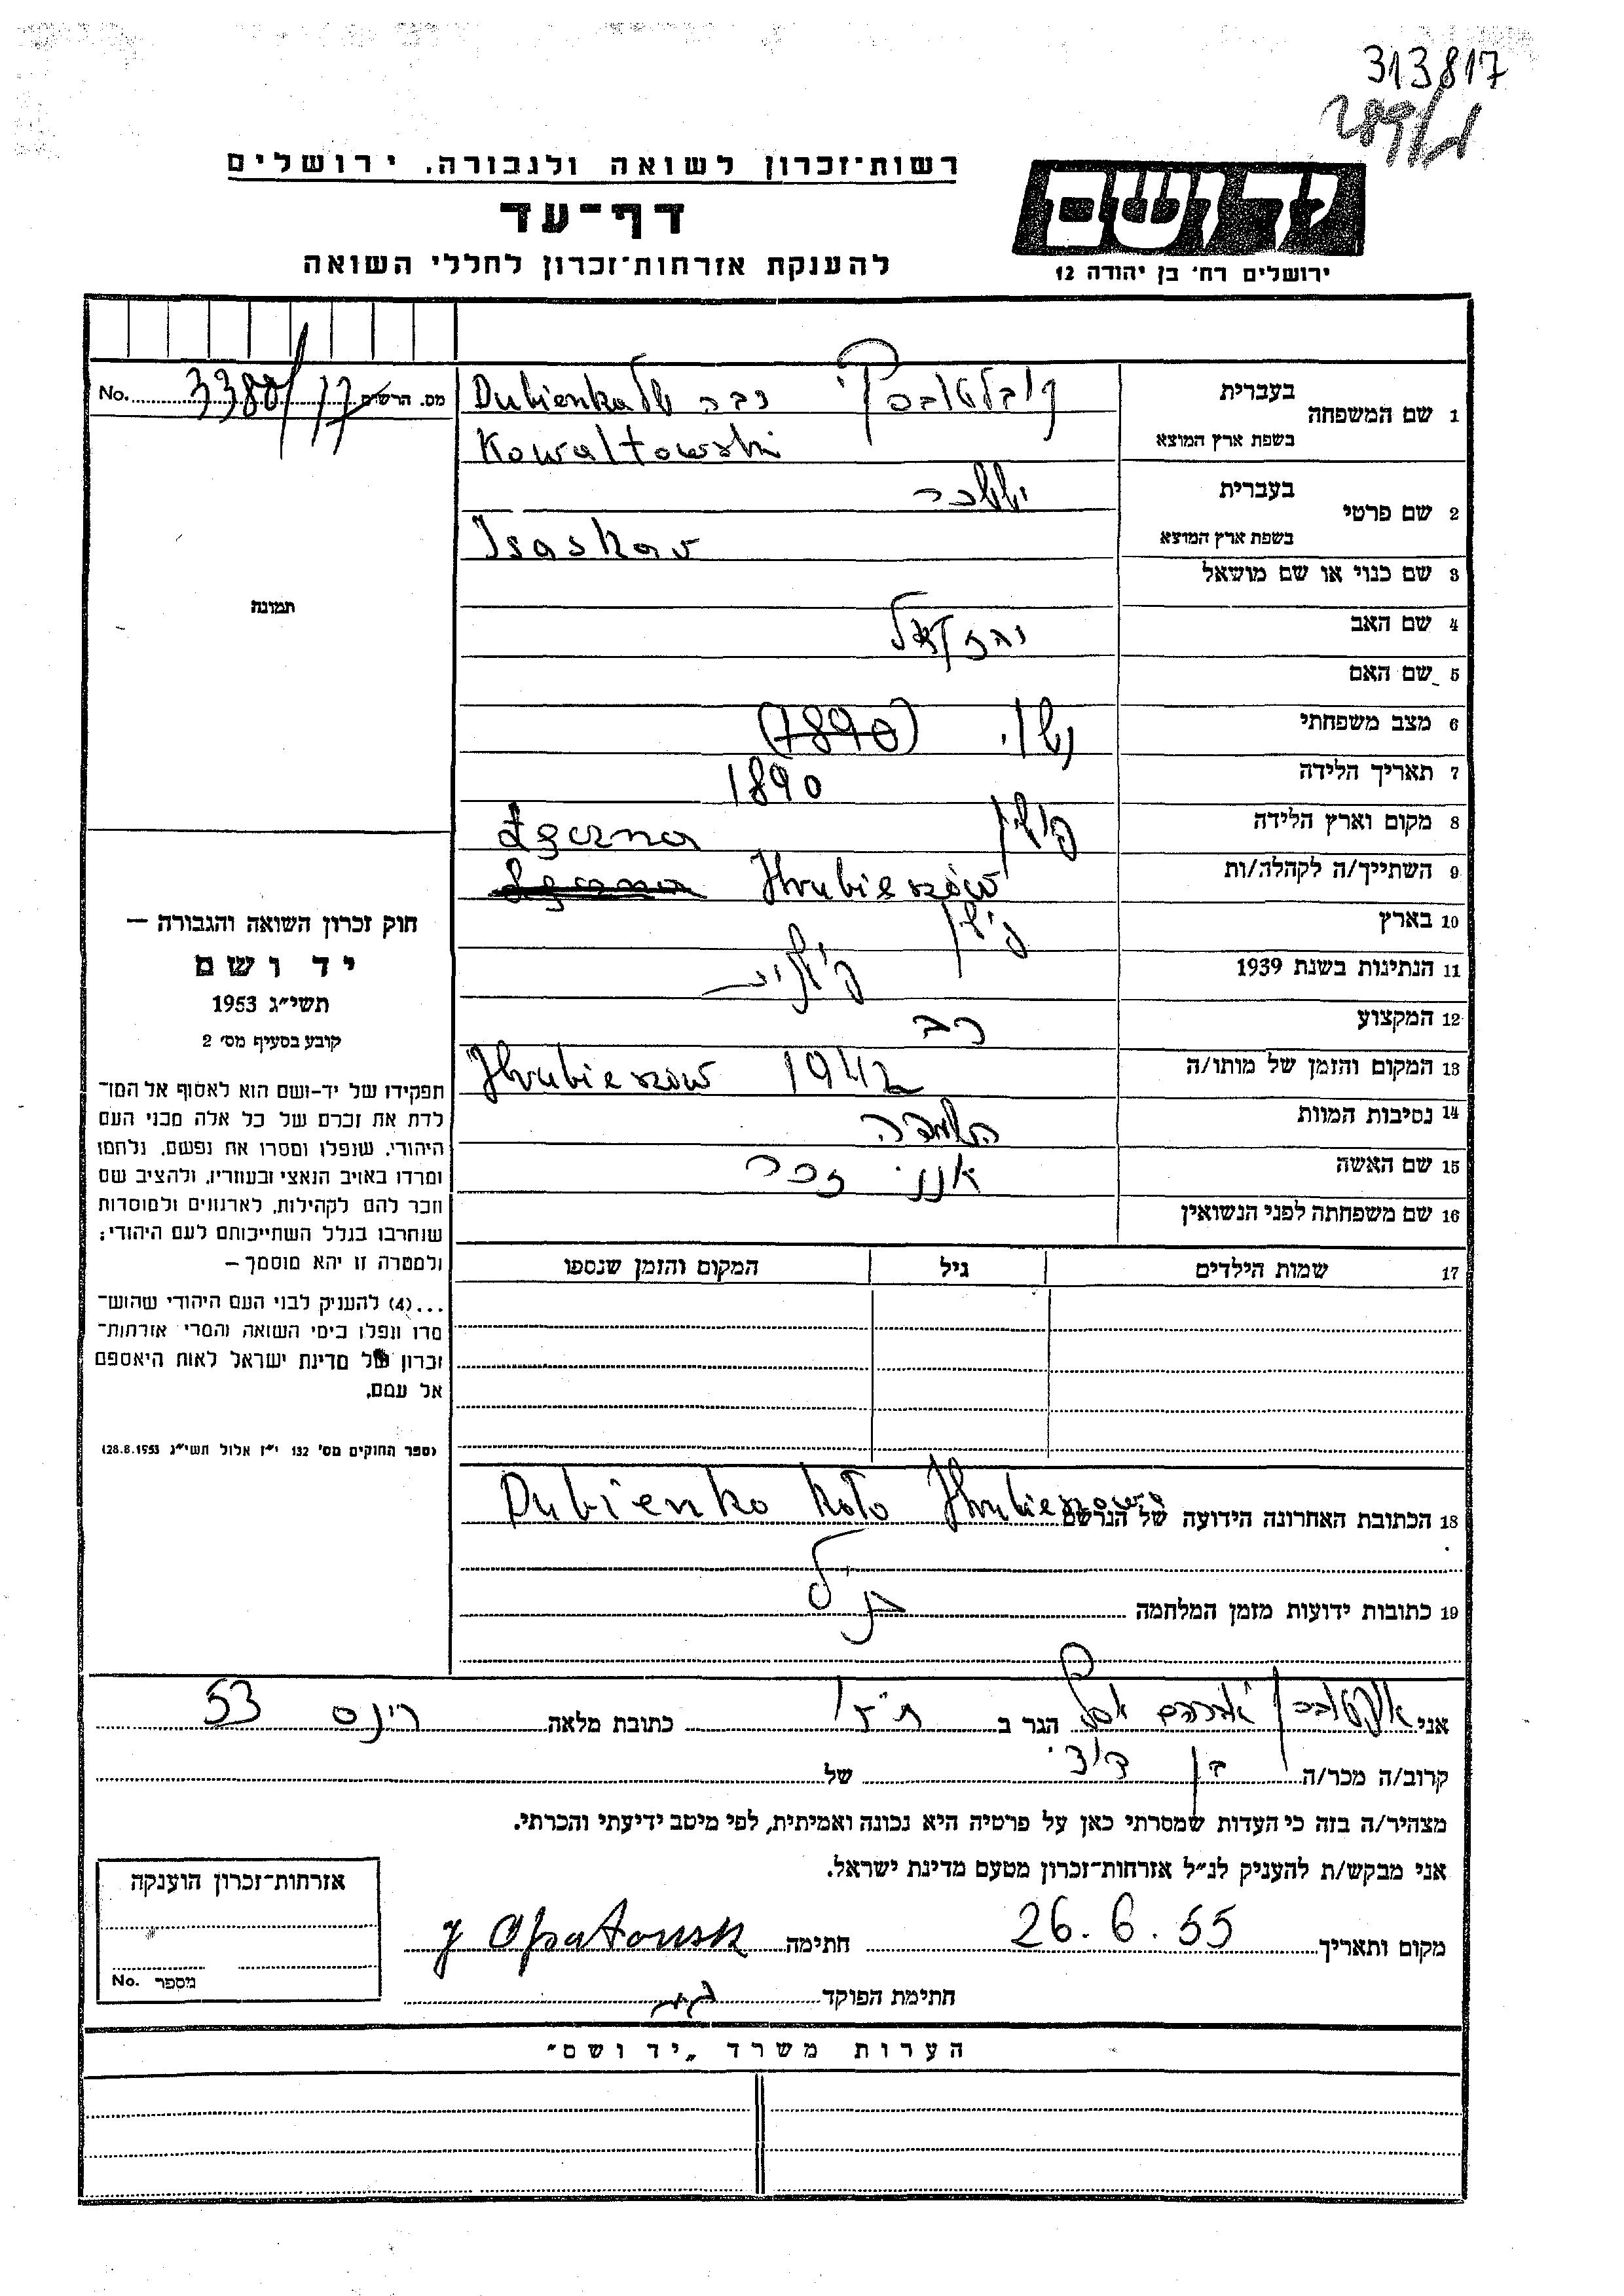 313817
רשות־זכרון לשואה ולגבורה, ירושלים
דף־עד
להענקת אזרחות־זכרון לחללי השואה
יד ושם
ירושלים רח׳ בן יהודה 12
No. 3380/17 מס. הרשום
בעברית
1 שם המשפחה
בשפת ארץ המוצא
קובלטובסקי רבה של Dubienka
Kowaltowski
בעברית
2 שם פרטי
בשפת ארץ המוצא
יששכר
Isaskar
3 שם כנוי או שם מושאל
4 שם האב יחזקאל
5 שם האם
6 מצב משפחתי נשוי (1890)
7 תאריך הלידה 1890
8 מקום וארץ הלידה פולין Łęczna
9 השתייך/ה לקהלה/ות Hrubieszów
10 בארץ פולין
11 הנתינות בשנת 1939 פולנית
12 המקצוע רב
13 המקום והזמן של מותו/ה Hrubieszów 1942
14 נסיבות המוות השמדה
15 שם האשה
16 שם משפחתה לפני הנשואין
17 שמות הילדים גיל המקום והזמן שנספו
18 הכתובת האחרונה הידועה של הנרשם Dubienko koło Hrubieszowa
19 כתובות ידועות מזמן המלחמה כנ"ל
תמונה
חוק זכרון השואה והגבורה —
יד ושם
תשי״ג 1953
קובע בסעיף מס׳ 2
תפקידו של יד-ושם הוא לאסוף אל המו־
לדת את זכרם של כל אלה מבני העם
היהודי, שנפלו ומסרו את נפשם, נלחמו
ומרדו באויב הנאצי ובעוזריו, ולהציב שם
וזכר להם לקהילות, לארגונים ולמוסדות
שנחרבו בגלל השתייכותם לעם היהודי;
ולמטרה זו יהא מוסמך —
...(4) להעניק לבני העם היהודי שהוש־
מדו ונפלו בימי השואה והמרי אזרחות־
זכרון של מדינת ישראל לאות היאספם
אל עמם.
(ספר החוקים מס׳ 132 י״ז אלול תשי״ג 28.8.1953)
אני הגר ב ת"א כתובת מלאה ריינס 53
קרוב/ה מכר/ה בן דודי של
מצהיר/ה בזה כי העדות שמסרתי כאן על פרטיה היא נכונה ואמיתית, לפי מיטב ידיעתי והכרתי.
אני מבקש/ת להעניק לנ״ל אזרחות־זכרון מטעם מדינת ישראל.
מקום ותאריך 26.6.55 חתימה J Opatowsk
חתימת הפוקד
אזרחות־זכרון הוענקה
מספר No.
הערות משרד „יד ושם"